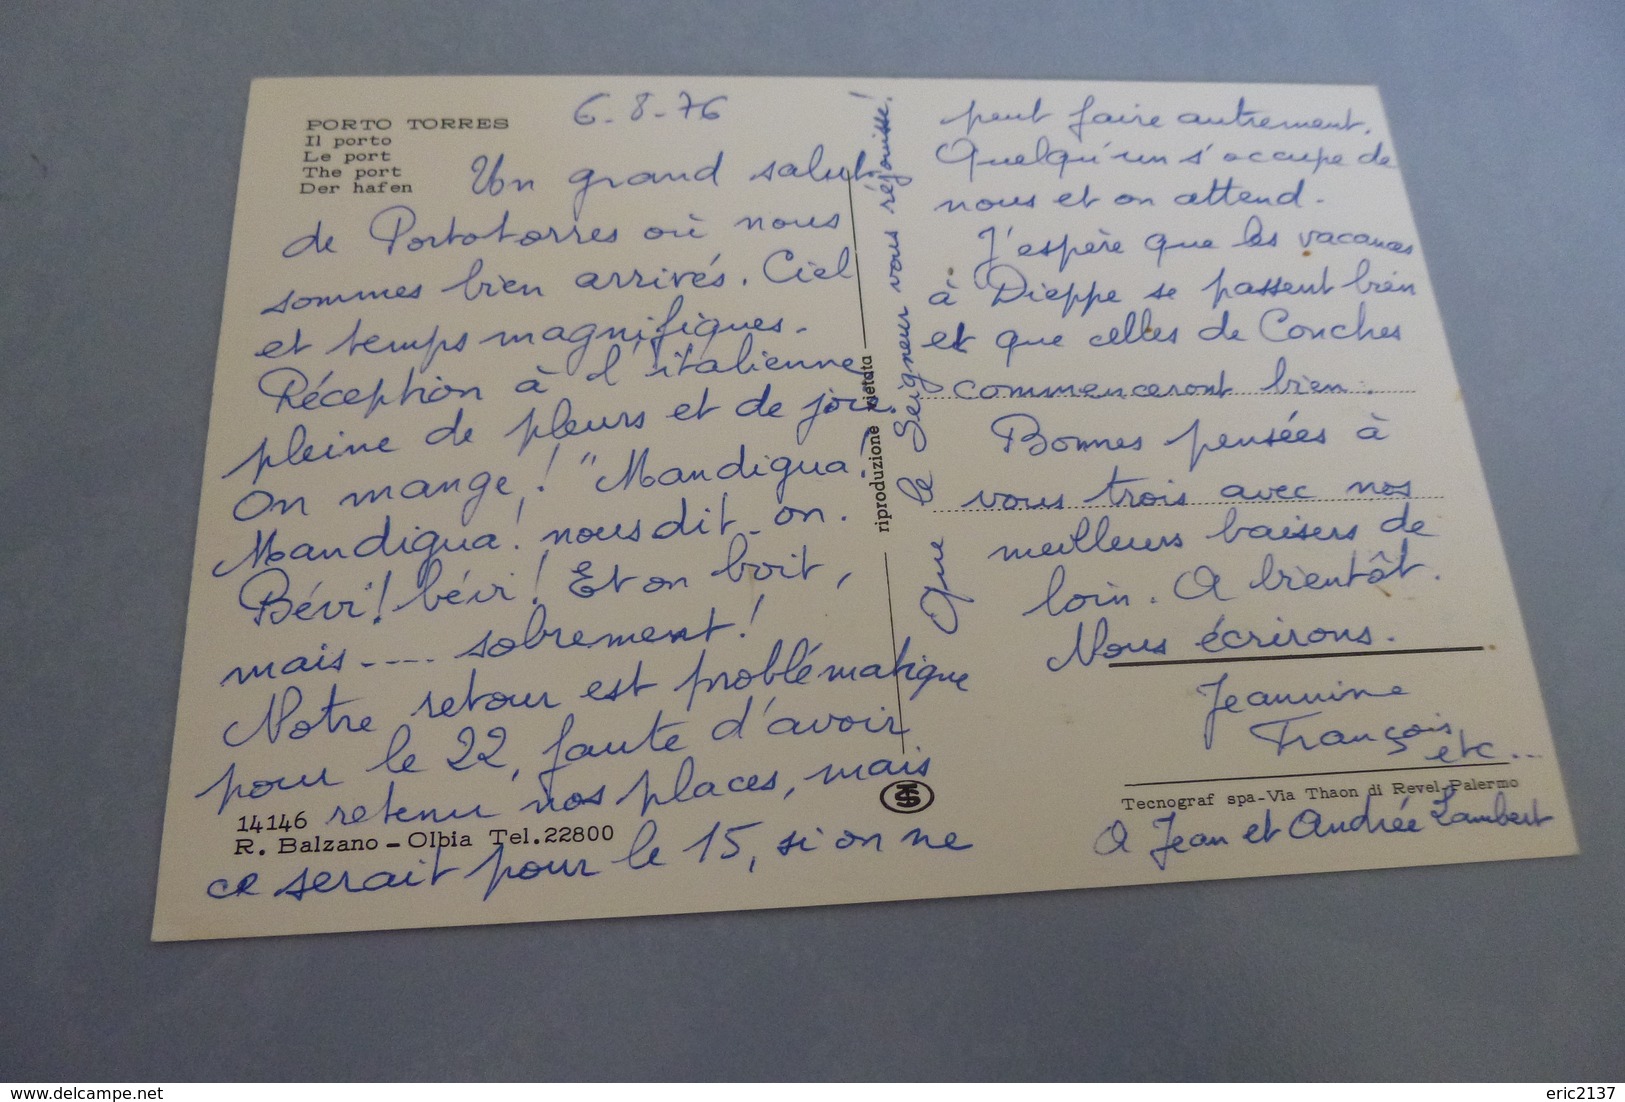 PORTO TORRES
Il porto
Le port
The port
Der hafen
6-8-76
Un grand salut
de Portotorres où nous
sommes bien arrivés. Ciel
et temps magnifiques.
Réception à l'italienne
pleine de pleurs et de joie.
On mange! "Mandigua!
Mandigua! nous dit-on.
Bévi! bévi! Et on boit,
mais---- sobrement!
Notre retour est problématique
pour le 22, faute d'avoir
retenu nos places, mais
ce serait pour le 15, si on ne
14146
R. Balzano - Olbia Tel.22800
riproduzione vietata
Que le Seigneur vous réjouisse!
peut faire autrement.
Quelqu'un s'occupe de
nous et on attend.
J'espère que les vacances
à Dieppe se passent bien
et que celles de Conches
commenceront bien.
Bonnes pensées à
vous trois avec nos
meilleurs baisers de
loin. A bientôt.
Nous écrirons.
Jeannine
François
etc...
Tecnograf spa-Via Thaon di Revel-Palermo
A Jean et Andrée Lambert
eric2137